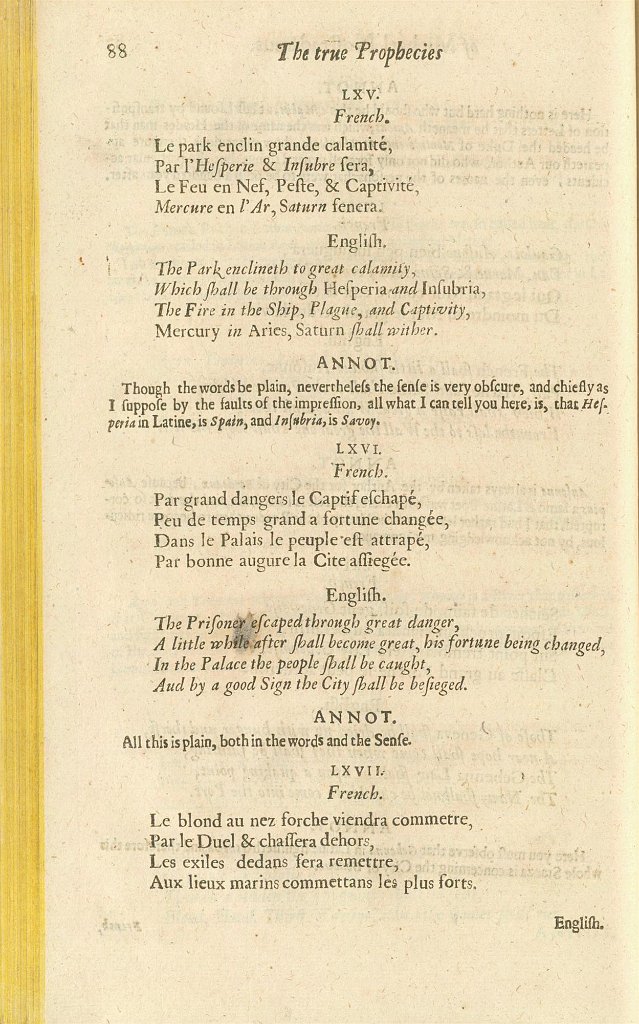 88 The true Prophecies
LXV.
French.
Le park enclin grande calamité,
Par l'Heſperie & Inſubre ſera,
Le Feu en Neſ, Peſte, & Captivité,
Mercure en l'Ar, Saturn fenera.
Engliſh.
The Park enclineth to great calamity,
Which ſhall be through Heſperia and Inſubria,
The Fire in the Ship, Plague, and Captivity,
Mercury in Aries, Saturn ſhall wither.
ANNOT.
Though the words be plain, nevertheleſs the ſenſe is very obſcure, and chiefly as
I ſuppoſe by the faults of the impreſſion, all what I can tell you here, is, that Heſ-
peria in Latine, is Spain, and Inſubria, is Savoy.
LXVI.
French.
Par grand dangers le Captif eſchapé,
Peu de temps grand a fortune changée,
Dans le Palais le peuple eſt attrapé,
Par bonne augure la Cite aſſiegée.
Engliſh.
The Priſoner eſcaped through great danger,
A little while after ſhall become great, his fortune being changed,
In the Palace the people ſhall be caught,
Aud by a good Sign the City ſhall be beſieged.
ANNOT.
All this is plain, both in the words and the Senſe.
LXVII.
French.
Le blond au nez forche viendra commetre,
Par le Duel & chaſſera dehors,
Les exiles dedans fera remettre,
Aux lieux marins commettans les plus forts.
Engliſh.